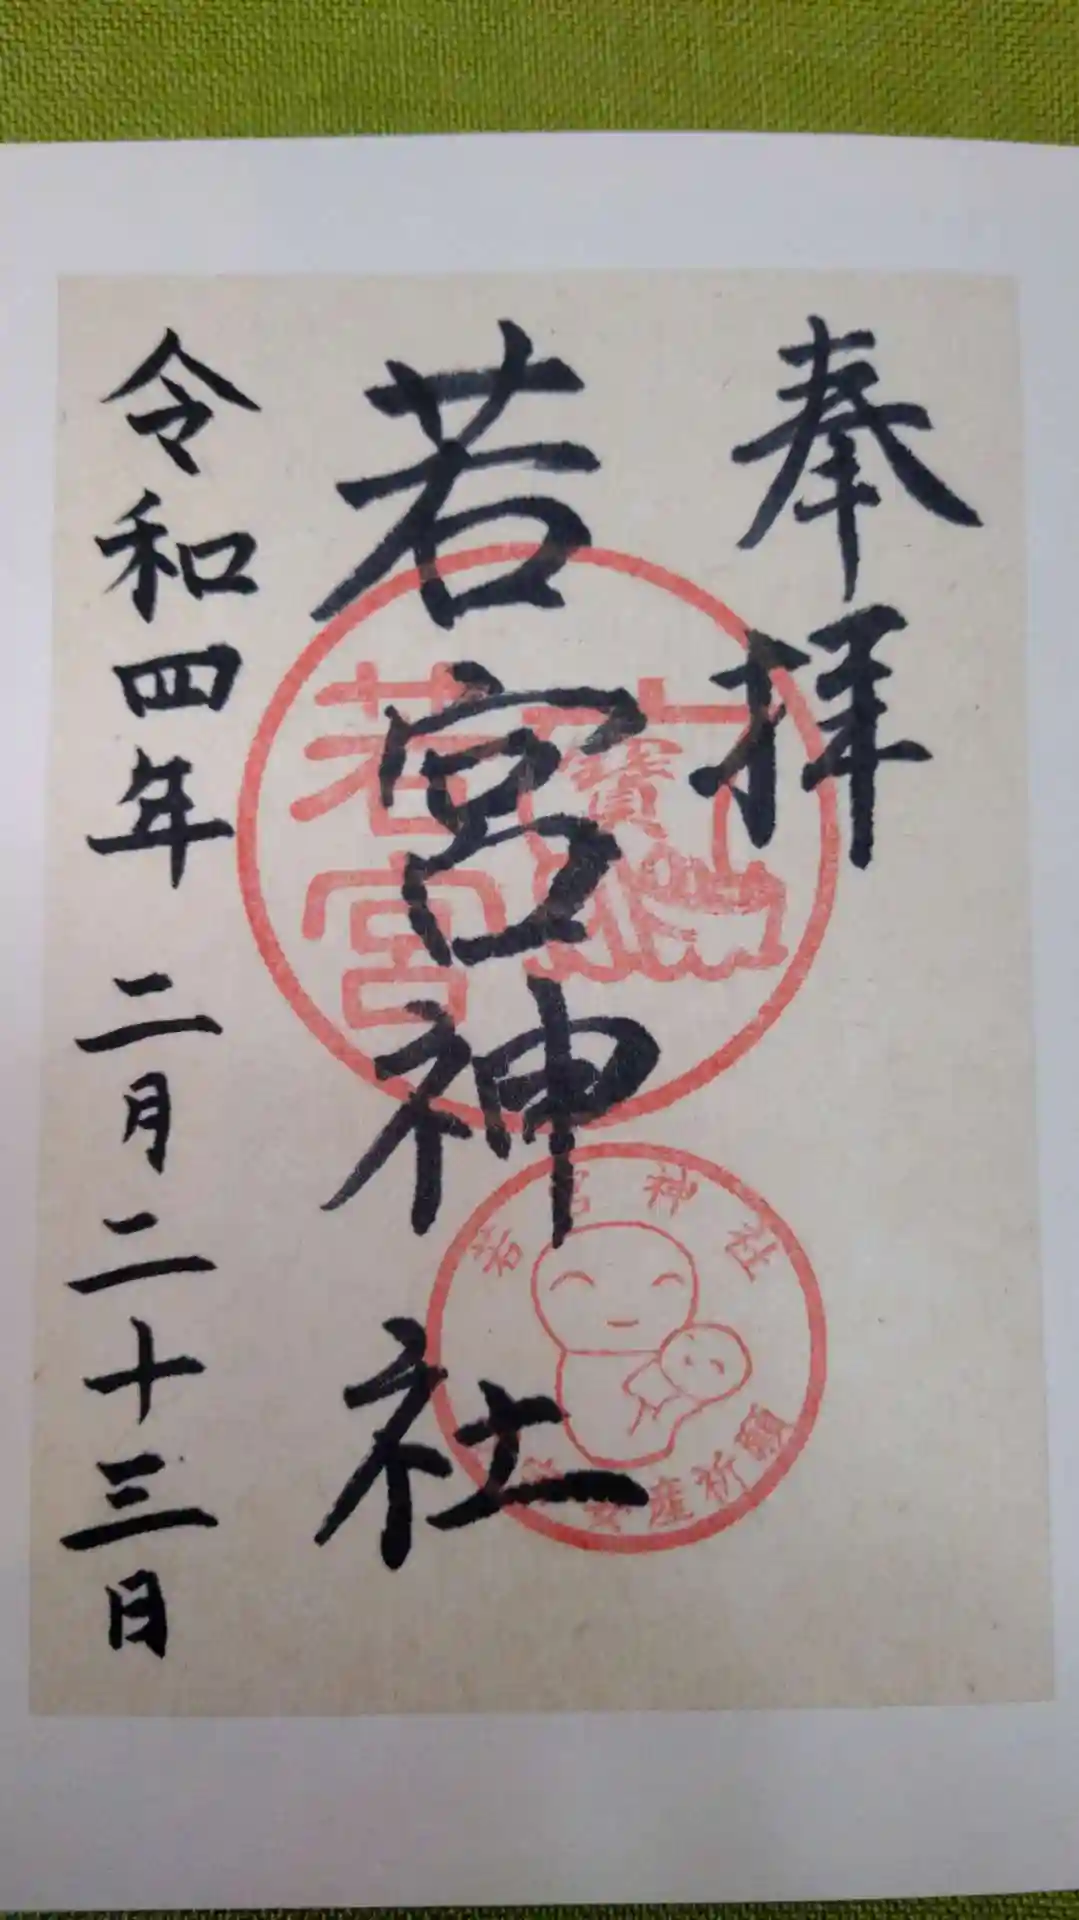 奉拝
若宮神社
令和四年 二月二十三日
若宮
寳
若宮神社
安産祈願